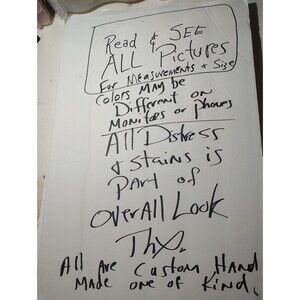 Read & SEE
ALL Pictures
For Measurements & Size
Colors May be
Different on
Monitors or phones
All Distress
& Stains is
Part of
OverAll Look
Thx.
All Are Custom Hand
Made one of Kind.